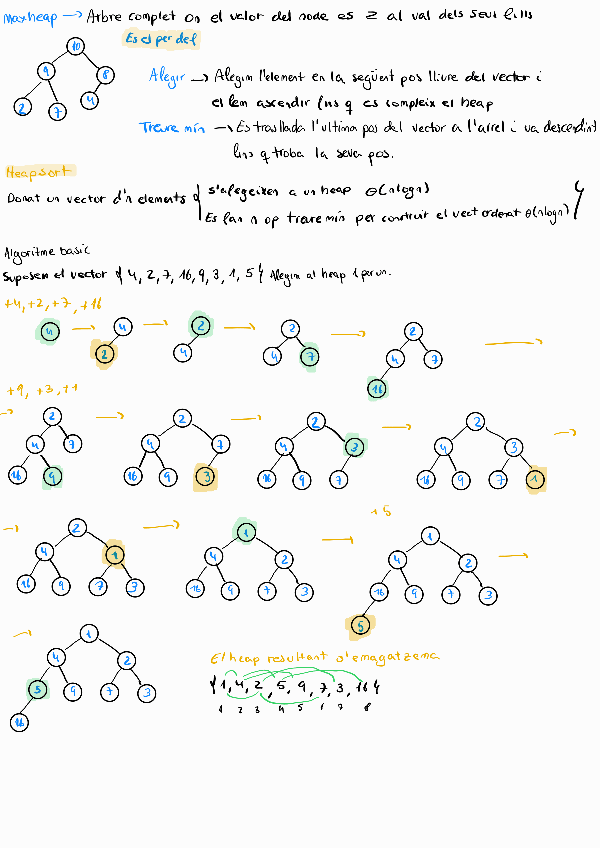 Maxheap → Arbre complet on el valor del node es ≥ al val dels seus fills
Es el per def
10
9 8
2 7 4
Afegir → Afegim l'element en la següent pos lliure del vector i
el fem ascendir fins q es compleix el heap
Treure min → Es trasllada l'ultima pos del vector a l'arrel i va descendint
fins q troba la seva pos.
Heapsort
Donat un vector d'n elements { s'afegeixen a un heap θ(nlogn)
Es fan n op treure min per construit el vect ordenat θ(nlogn) }
Algoritme basic
Suposem el vector { 4, 2, 7, 16, 9, 3, 1, 5 } Afegim al heap 1 per un.
+4, +2, +7, +16
4 → 4 → 2 → 2 → 2 →
2 4 4 7 4 7
16
+9, +3, +1
→ 2 → 2 → 2 → 2 →
4 7 4 7 4 3 4 3
16 9 16 9 3 16 9 7 16 9 7 1
+5
→ 2 → 1 → 1 →
4 1 4 2 4 2
16 9 7 3 16 9 7 3 16 9 7 3
5
→ 1
4 2
5 9 7 3
16
El heap resultant s'emagatzema
{ 1, 4, 2, 5, 9, 7, 3, 16 }
1 2 3 4 5 6 7 8